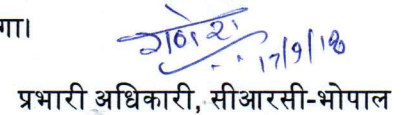 गा।
गणेश
17/9/18
प्रभारी अधिकारी, सीआरसी-भोपाल